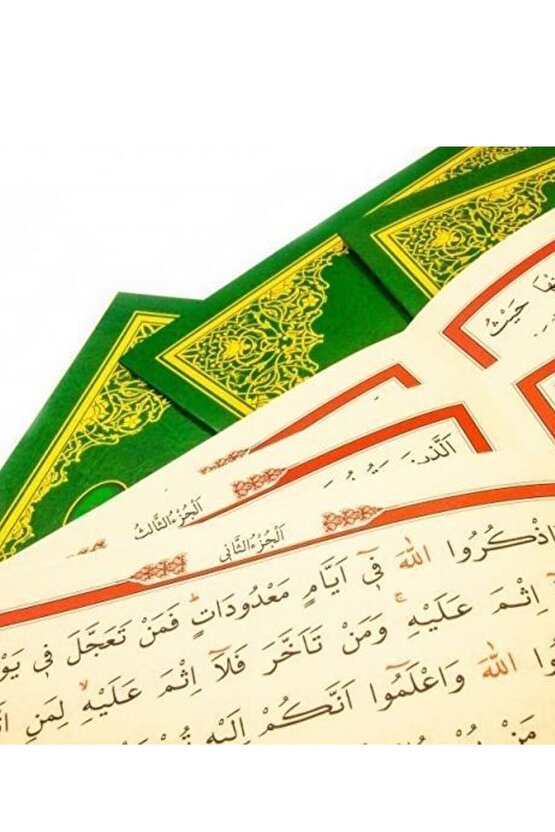 حَيْثُ
اَلَّذٖينَ
اَلْجُزْءُ الثَّالِثُ
اَلْجُزْءُ الثَّانٖى
اذْكُرُوا اللّٰهَ فٖٓى اَيَّامٍ مَعْدُودَاتٍ فَمَنْ تَعَجَّلَ فٖى
اِثْمَ عَلَيْهِ وَمَنْ تَاَخَّرَ فَلَٓا اِثْمَ عَلَيْهِ لِمَنِ
اللّٰهَ وَاعْلَمُٓوا اَنَّكُمْ اِلَيْهِ
مَنْ